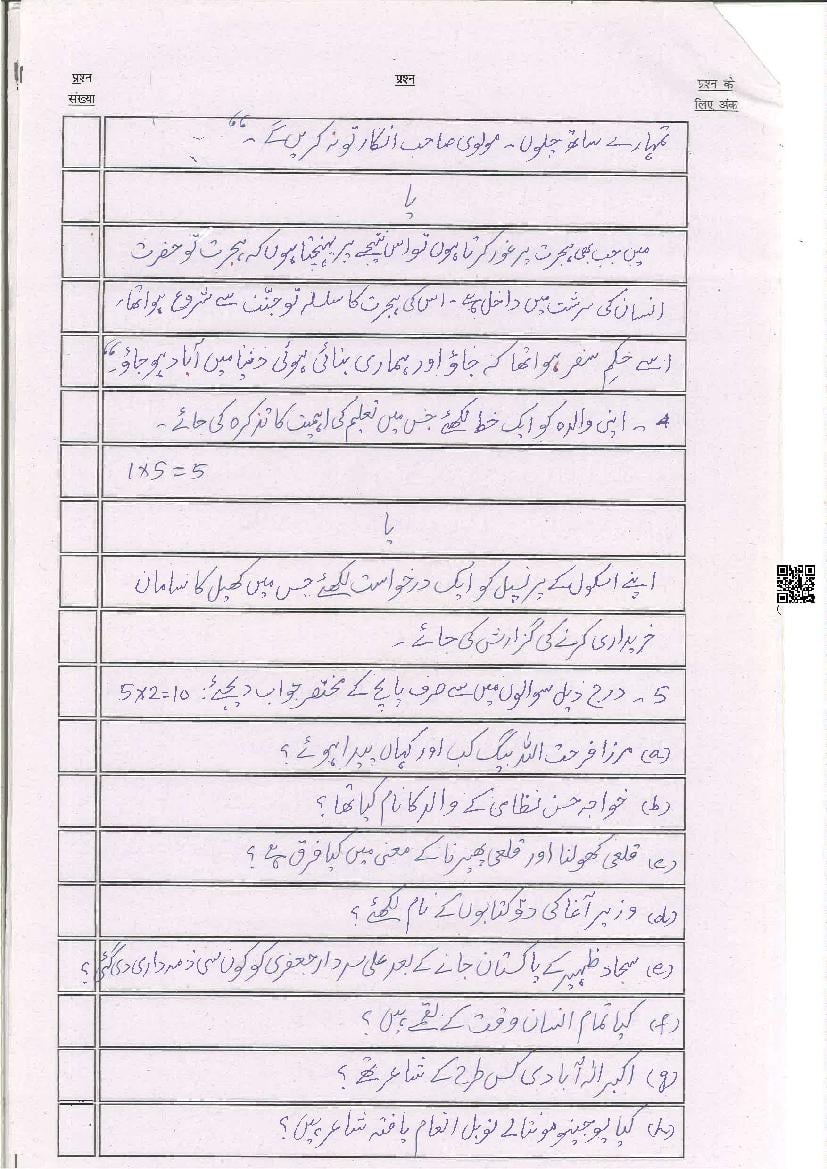 प्रश्न संख्या
प्रश्न
प्रश्न के लिए अंक
تمہارے ساتھ چلوں ۔ مولوی صاحب انکار تو نہ کریں گے ۔"
یا
میں جب بھی ہجرت پر غور کرتا ہوں تو اس نتیجے پر پہنچتا ہوں کہ ہجرت تو حضرت
انسان کی سرشت میں داخل ہے ۔ اس کی ہجرت کا سلسلہ تو جنّت سے شروع ہوا تھا۔
اسے حکم سفر ہوا تھا کہ جاؤ اور ہماری بنائی ہوئی دنیا میں آباد ہو جاؤ۔"
4 ۔ اپنی والدہ کو ایک خط لکھئے جس میں تعلیم کی اہمیت کا تذکرہ کی جائے ۔
1×5=5
یا
اپنے اسکول کے پرنسپل کو ایک درخواست لکھئے جس میں کھیل کا سامان
خریداری کرنے کی گزارش کی جائے ۔
5 ۔ درج ذیل سوالوں میں سے صرف پانچ کے مختصر جواب دیجئے: 5×2=10
(a) مرزا فرحت اللہ بیگ کب اور کہاں پیدا ہوئے ؟
(b) خواجہ حسن نظامی کے والد کا نام کیا تھا ؟
(c) قلعی کھولنا اور قلعی پھیرنا کے معنی میں کیا فرق ہے ؟
(d) وزیر آغا کی دو کتابوں کے نام لکھئے ؟
(e) سجاد ظہیر کے پاکستان جانے کے بعد علی سردار جعفری کو کون سی ذمہ داری دی گئی ؟
(f) کیا تمام انسان وقت کے لقمے ہیں ؟
(g) اکبر الہ آبادی کس طرح کے شاعر تھے ؟
(h) کیا یوجینو مونتالے نوبل انعام یافتہ شاعر ہیں ؟